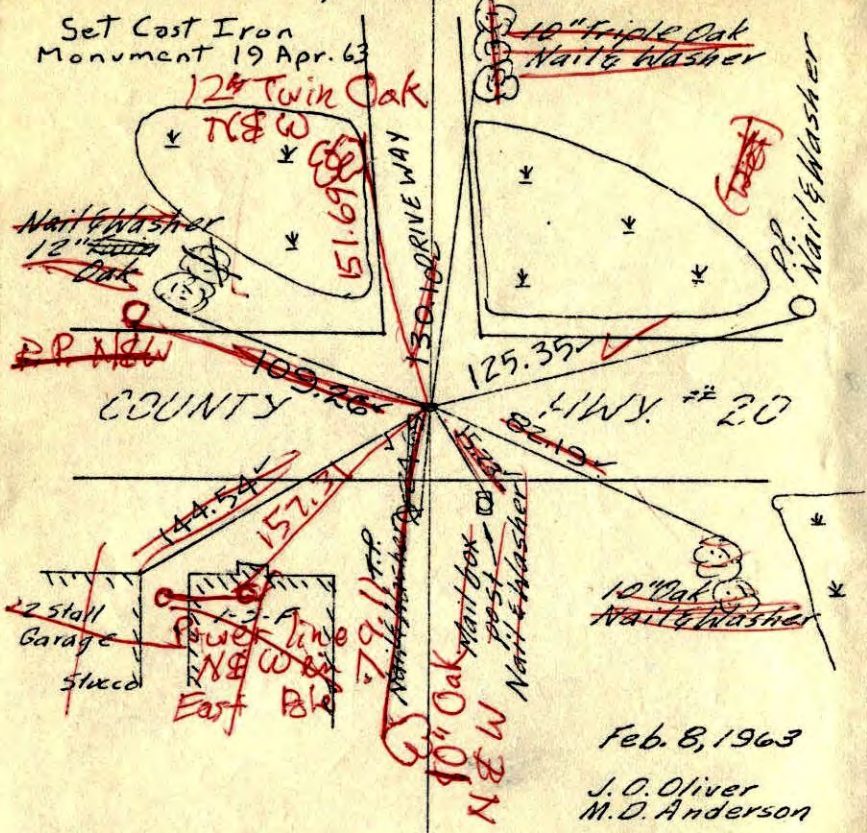 Set Cast Iron
Monument 19 Apr. 63
10" Triple Oak
Nail & Washer
12" Twin Oak
N & W
151.69
DRIVEWAY
130.10
P.P.
Nail & Washer
Nail & Washer
12" Twin
Oak
P.P. N&W
109.26
125.35
COUNTY HWY. # 20
82.19
144.54
157.31
79.11
T.P.
Nail & Washer
Mail box
post
Nail & Washer
10" Oak
N & W
10" Oak
Nail & Washer
2 Stall
Garage
Stucco
1-S-F
Power line
N & W in
East Pole
Feb. 8, 1963
J. O. Oliver
M. D. Anderson